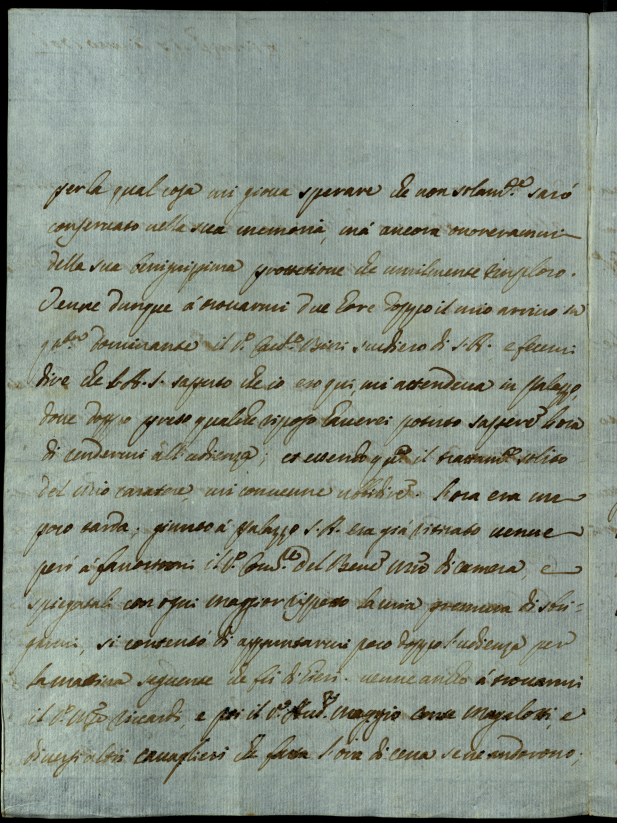 per la qual cosa mi giova sperare che non solam.te sarò
conservato nella sua memoria, mà ancora onorerammi
della sua benignissima protettione che umilmente imploro.
Venne dunque à trovarmi due hore doppo il mio arrivo in
dominante il S.r Cav.re scudiero di S.A. e fecemi
dire che S.A.S. saputo che io ero qui, mi attendeva in Palazzo,
dove doppo preso qualche riposo haverei potuto sapere l'hora
di rendermi all'udienza; et essendo il trattam.to solito
del mio carattere mi convenne ubbidire. l'hora era un
poco tarda, giunto à Palazzo S.A. era già ritirato venne
però à favorirmi il S.r Del Bene di camera, e
spiegatali con ogni maggior rispetto la mia premura di
si contentò di appuntarmi poco doppo l'udienza per
la mattina seguente che fù di Ieri. venne anche à trovarmi
il S.r Riccardi, e poi il S.r maggio conte Magalotti, e
diversi altri cavaglieri che fatta l'ora di cena se ne andorono;